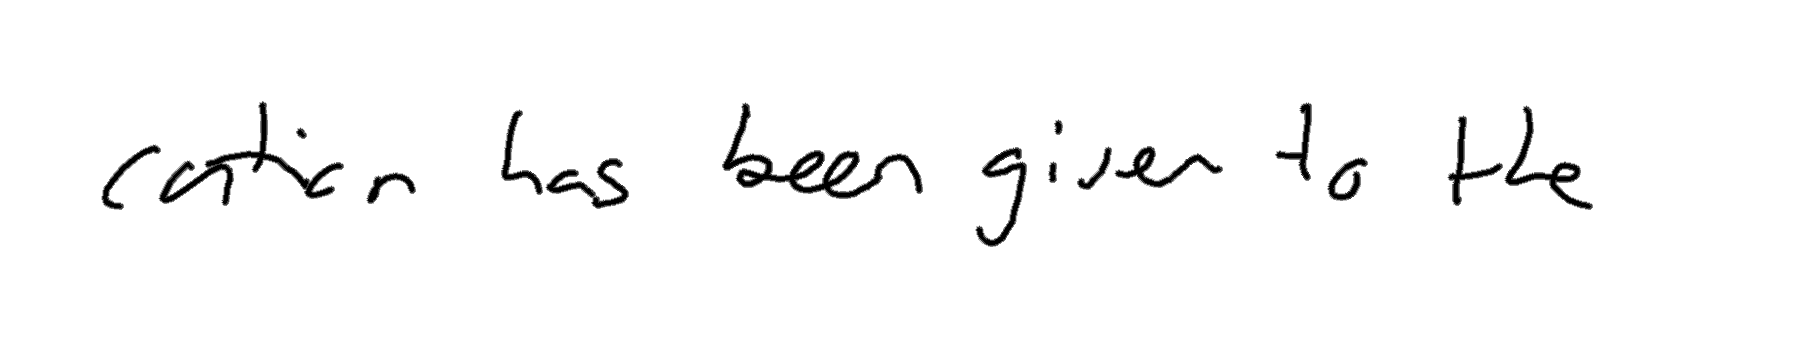 cation has been given to the